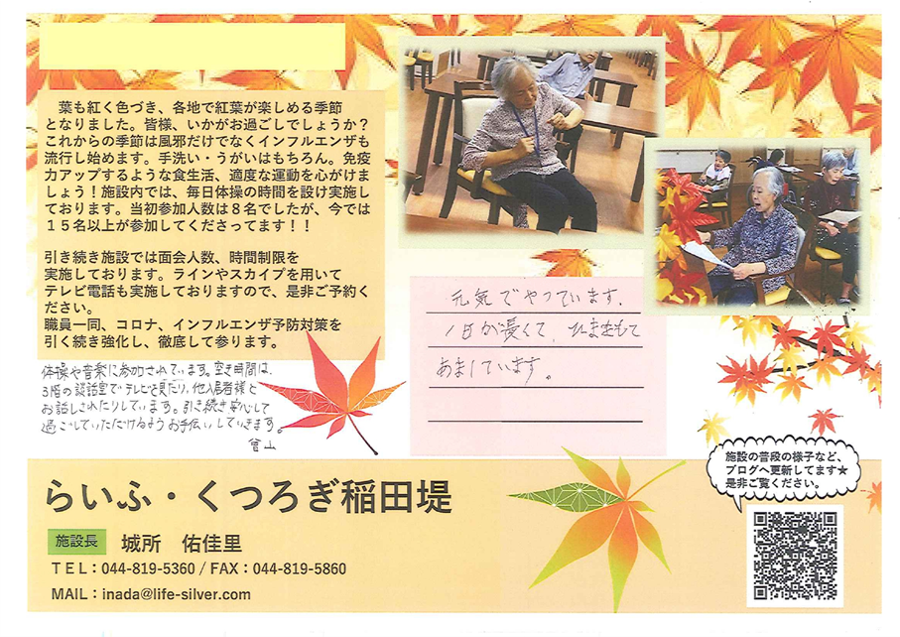 葉も紅く色づき、各地で紅葉が楽しめる季節
となりました。皆様、いかがお過ごしでしょうか？
これからの季節は風邪だけでなくインフルエンザも
流行し始めます。手洗い・うがいはもちろん。免疫
力アップするような食生活、適度な運動を心がけま
しょう！施設内では、毎日体操の時間を設け実施し
ております。当初参加人数は８名でしたが、今では
１５名以上が参加してくださってます！！
引き続き施設では面会人数、時間制限を
実施しております。ラインやスカイプを用いて
テレビ電話も実施しておりますので、是非ご予約く
ださい。
職員一同、コロナ、インフルエンザ予防対策を
引く続き強化し、徹底して参ります。
体操や音楽に参加されています。空き時間は、
3階の談話室でテレビを見たり、他入居者様と
お話しされたりしています。引き続き安心して
過ごしていただけるようお手伝いしていきます。
元気でやっています。
1日が長くて、ひまをもて
あましています。
施設の普段の様子など、
ブログへ更新してます★
是非ご覧ください。
らいふ・くつろぎ稲田堤
施設長 城所 佑佳里
ＴＥＬ：044-819-5360 / FAX：044-819-5860
MAIL：inada@life-silver.com